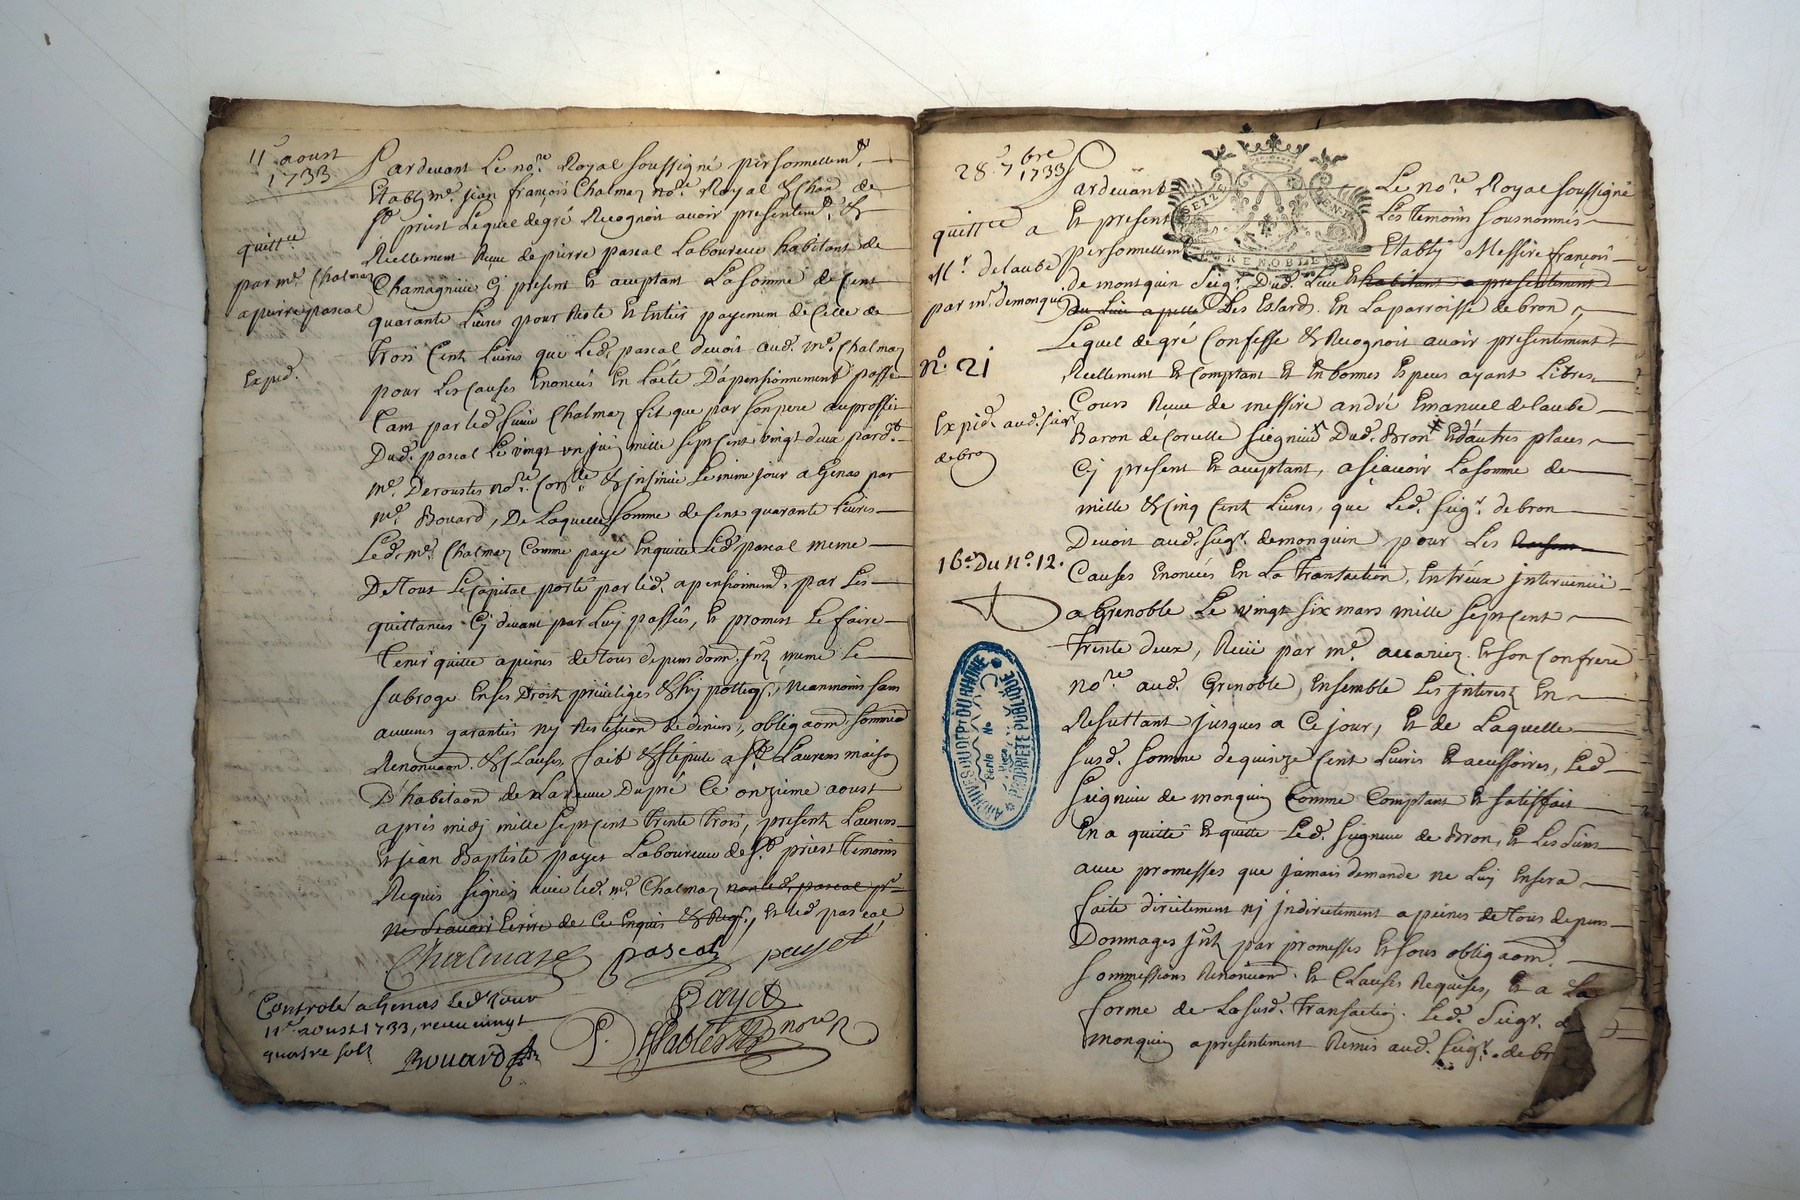 11e aoust
1733
quittce
par me. Chalmaz
a pierre pascal
Exped.
Pardevant Le nore. Royal soussigné personnellemt.
Etably me. jean françois Chalmaz nore. Royal & Chan. de
st. priest Lequel de gré Recognoit avoir presentemt. &
Réellement Reçue de pierre pascal Laboureur habitant de
Chamagnieu Cy present Et acceptant La somme de Cent
quarante Livres pour Reste Et Entier payement de Celle de
trois Cent Livres que Led. pascal devoit aud. me. Chalmaz
pour Les Causes Enoncés En Lacte D'apensionnement passé
Tant par led. sieur Chalmaz fit que par son pere au proffit
Dud. pascal Le vingt un juin mille sept Cent vingt deux pardt.
me. Deroustes nore. & insinué Le mème jour a Genas par
me. Bouard, De Laquelle somme de Cent quarante Livres
Led. me. Chalmaz Comme payé En quitte Led. pascal meme
De tout Le Capital porté par led. apensionnemt. par Les
quittances Cy devant par Luy passées, Et promet Le faire
tenir quitte a peines de tous depens domm. Intz meme Le
subroge En ses Droits privileges & hypotteqs. Neanmoins sans
aucune garantie ny Restitution de deniers, obligaon. soumion.
Renonciaon. & Clauses fait & stipulé a st. Laurens maison
D'habitaon. de La veuve Dupré Ce onzieme aoust
après midy mille sept Cent trente trois, presentz Laurens
Et jean Baptiste payet Laboureurs de st. priest temoins
Requis signés avec led. me. Chalmaz non led. pascal pr.
ne sçavoir Ecrire de Ce Enquis & Reqs., Et led. pascal
Chalmaz pascal payet
Payet
nore
Controllé a Genas led. jour
11e aoust 1733, receu vingt
quatre solz
Bouard
28e 7bre
1733
quittce a
Mr. delaube
par mr. demonquin
No. 21
Exped. aud. seigr.
de bron
16e. du No. 12.
GRENOBLE
Pardevant Le nore. Royal soussigné
Et present Les temoins sousnommés
personnellement Etably Messire françois
de monquin seigr. Dud. Lieu Et habitant a presentement
Du Lieu appellé Des Essards En La parroisse de bron,
Lequel de gré Confesse & Recognoit avoir presentement
Réellement Et Comptant Et En bonnes Especes ayant Libres
Cours Reçue de messire andré Emanuel delaube
Baron de Corcelle seigneur Dud. Bron Et d'autres places
Cy present Et acceptant, a sçavoir La somme de
mille & Cinq Cent Livres, que Led. seigr. de bron
Devoit aud. seigr. demonquin pour Les
Causes Enoncées En La transaction, Entr'eux jntervenüe
a Grenoble Le vingt six mars mille sept Cent
trente deux, Reçüe par me. accariez Et son Confrere
nore. aud. Grenoble, Ensemble Les jnteretz En
Resultant jusques a Ce jour, Et de Laquelle
susd. somme de quinze Cent Livres Et accessoires, Led.
seigneur de monquin Comme Comptant Et satisfait
En a quitté Et quitte Led. seigneur de Bron, Et Les siens
avec promesses que jamais demande ne Luy En sera
faite directement ny jndirectement a peines de tous depens
Dommages jntz par promesses Et sous obligaon.
sommissions Renonciaon. Et Clauses Requises, Et a La
forme de La susd. transaction. Led. seigr. de
monquin a presentement Remis aud. seigr. de br
ARCHIVES DU DÉPT DU RHÔNE
PROPRIÉTÉ PUBLIQUE